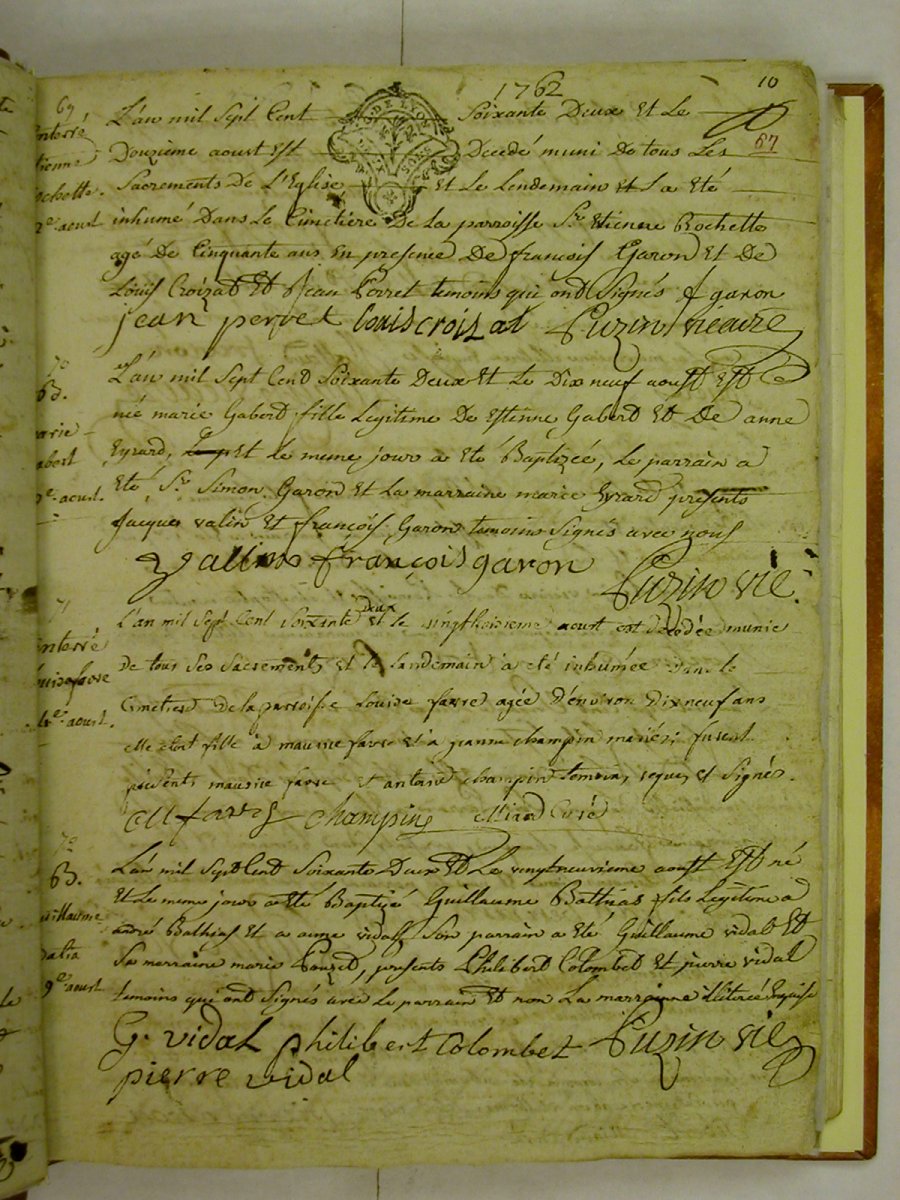 1762
10
67
L'an mil Sept Cent Soixante Deux et Le
DE LYON
67
enterré
Douzième aoust est Decedé muni De tous Les
tienne
Sacrements De L'Eglise et Le Lendemain et La eté
ochette.
inhumé Dans Le Cimetière De La parroisse Sr. Etienne Rochette
2e aoust
agé De Cinquante ans En presence De françois Garon et De
Louis Croizat Et Jean Perret temoins qui ont Signés f garon
jean perret Louis croisat Puzin vicaire
70
L'an mil Sept Cent Soixante Deux Et Le Dix neuf aoust Est
B.
né marie Gabert fille Legitime De Estienne Gabert Et De anne
marie
Eyrard, Et le meme jour a eté Baptizée, Le parrain a
abert
eté Sr. Simon Garon Et La marraine marie Eyrard presents
9e aoust.
Jacques valin Et françois Garon temoins Signés avec nous
valin françois garon
Puzin vic.
71
L'an mil Sept Cent Soixante deux et le vingttroisieme aoust est décédée munie
enterré
de tous Ses Sacrements et le landemain à eté inhumée dans le
ouise favre
Cimetiere de la parroisse Louise favre agée d'environ dix neuf ans
4e aoust.
elle etoit fille à maurice favre et à jeanne champin mariés; furent
présents maurice favre et antoine champin temoins requis et Signés.
M favre champin Miard Curé
72
L'an mil Sept Cent Soixante Deux Et Le vingtneuvieme aoust Est né
B.
Et Le meme jour a eté Baptizé Guillaume Bathias fils Legitime a
uillaume
andré Bathias Et a anne vidal Son parrain a eté Guillaume vidal Et
Sa marraine marie Pouzet, presents Philibert Colombet Et pierre vidal
9e aoust
temoins qui ont Signés avec Le parrain Et non La marraine illiterée Enquise
G. vidal philibert Colombet Puzin vic
pierre vidal